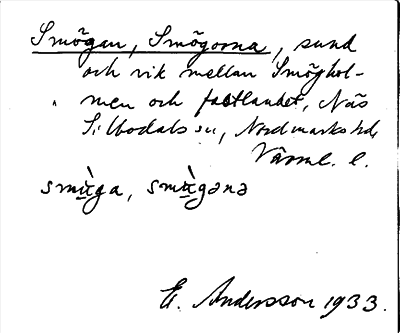 Smögan, Smögorna, sund
och vik mellan Smöghol-
men och fastlandet, Näs
Silbodals sn, Nordmarks hd,
Värml. l.
smùga, smùgənə
E. Andersson 1933.